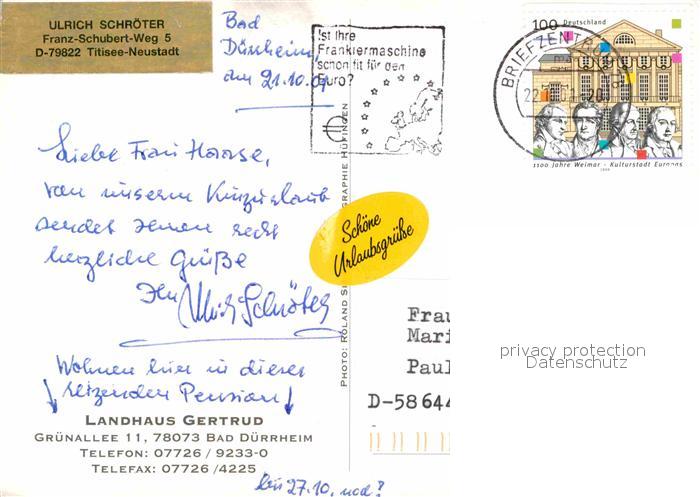 ULRICH SCHRÖTER
Franz-Schubert-Weg 5
D-79822 Titisee-Neustadt
Bad
Dürrheim,
den 21.10.01
Ist Ihre
Frankiermaschine
schon fit für den
Euro?
BRIEFZENTR
22.
20
100 Deutschland
1100 Jahre Weimar - Kulturstadt Europas
1999
Liebe Frau Haase,
von unserm Kurzurlaub
sendet Ihnen recht
herzliche Grüße
Ihr Ulrich Schröter
Schöne
Urlaubsgrüße
Wohnen hier in dieser
reizenden Pension
LANDHAUS GERTRUD
GRÜNALLEE 11, 78073 BAD DÜRRHEIM
TELEFON: 07726 / 9233-0
TELEFAX: 07726 /4225
bis 27.10.
PHOTO: ROLAND SI
GRAPHIE HÜFINGEN
Frau
Mari
Paul
D-58644
privacy protection
Datenschutz